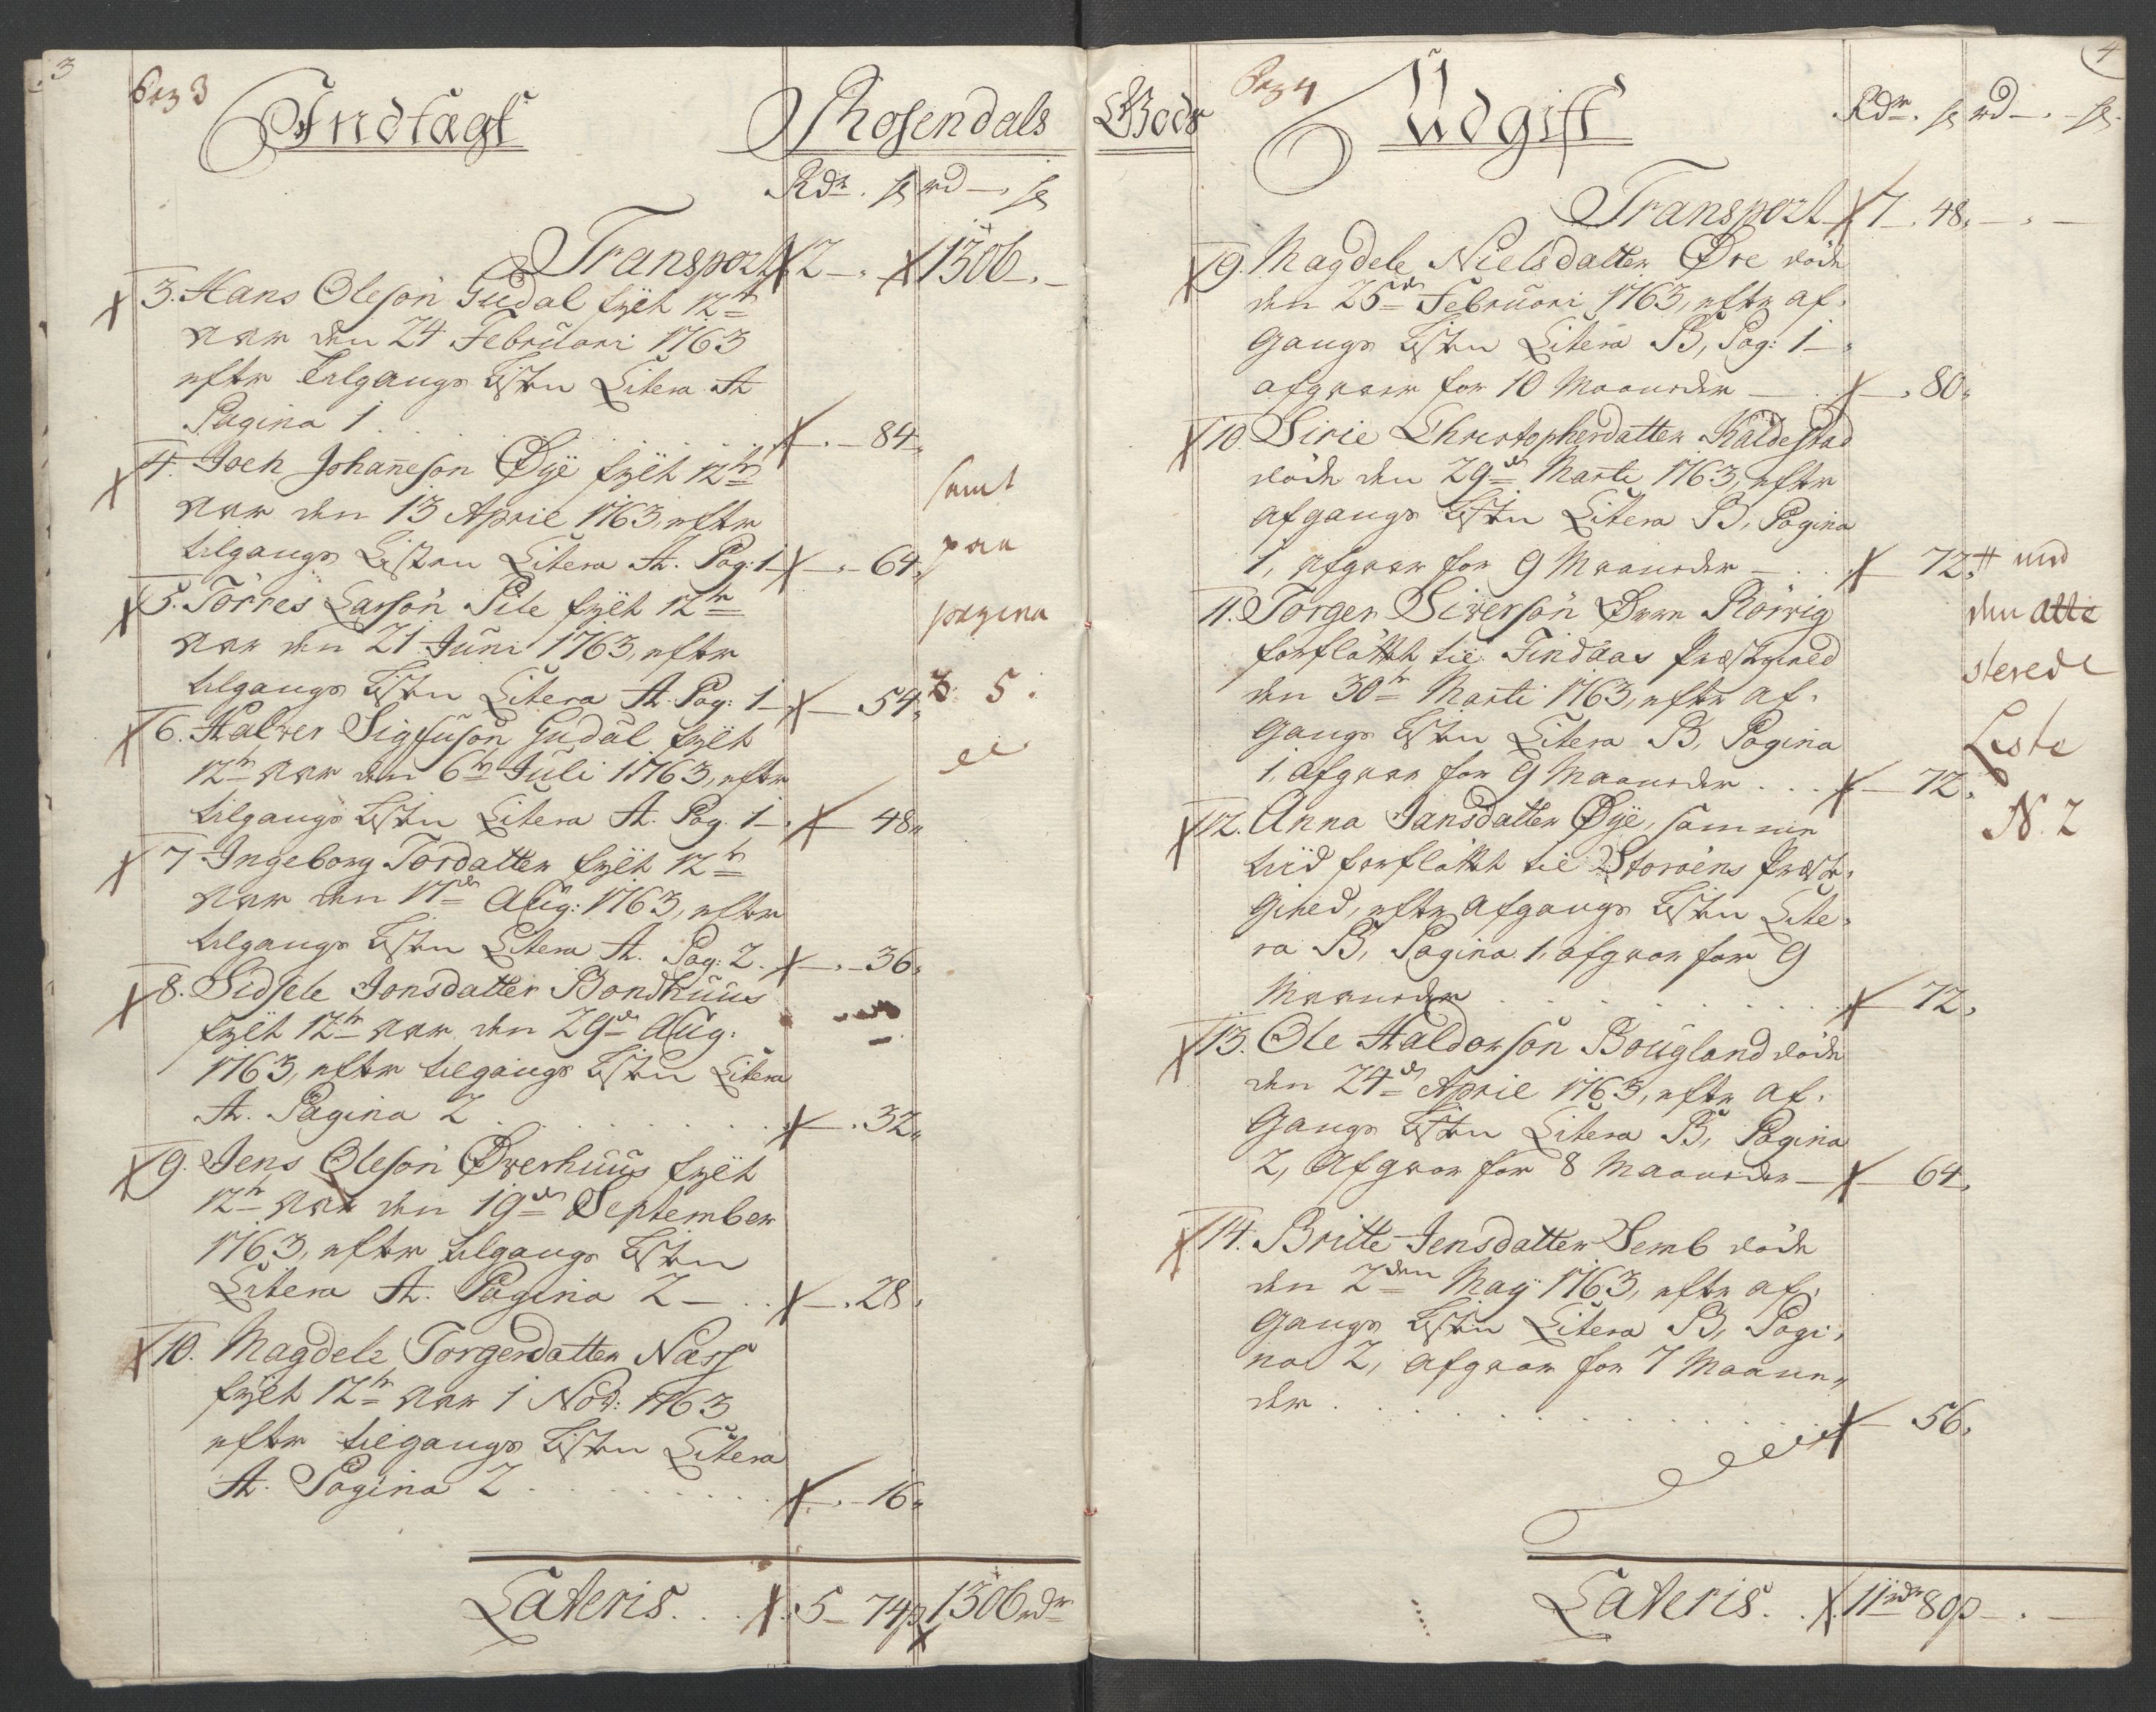 3
Pag 3
Indtægt
Rosendals
Rdr. s rd – s
Transport 2 – . – 1306 – . –
3. Hans Oleson Gudal fylt 12te
aar den 24 Februari 1763
efter Tilgangs Listen Litera A
Pagina 1 . – 84„
4. Joen Johanneson Øÿe fylt 12te
aar den 13 April 1763, efter
tilgangs Listen Litera A. Pag: 1 – . – 64„
5. Törres Larson Pile fylt 12te
aar den 21 Juni 1763, efter
tilgangs Listen Litera A. Pag: 1 – 54„
6. Halver Sigfuson Gudal fylt
12te aar den 6te Juli 1763, efter
tilgangs Listen Litera A. Pag. 1 – 48„
7 Ingeborg Tordatter fylt 12te
aar den 17de Aug: 1763, efter
tilgangs Listen Litera A. Pag: 2. – . – 36„
8. Sidsele Jonsdatter Bondhuus
fylt 12te aar den 29de Aug:
1763, efter tilgangs Listen Litera
A. Pagina 2 – . 32„
9. Jens Oleson Øverhuus fylt
12te aar den 19de September
1763, efter tilgangs Listen
Litera A. Pagina 2 – . . – . 28„
10. Magdele Torgersdatter Næss
fylt 12te aar 1 Nov: 1763
efter tilgangs Listen Litera
A. Pagina 2 . . . – . – 16„
samt
paa
pagina
3: 5.
Lateris. . . 5 – 74s 1306 rdr
4
Pag 4
Gods
Udgift
Rdr. s rd – . – s.
Transport 7 . 48„ – . –
9. Magdele Nielsdatter Øre døde
den 25de Februari 1763, efter af-
gangs Listen Litera B, Pag: 1 –
afgaar for 10 Maaneder – . – . 80„
10. Sirie Christophersdatter Kaldestad
døde den 29de Marti 1763, efter
afgangs Listen Litera B, Pagina
1, afgaar for 9 Maaneder – . . – 72„
11. Torger Siverson Øvre Rörvig
forflöttet til Findaas Præstegield
den 30te Marti 1763, efter af-
gangs Listen Litera B, Pagina
1, afgaar for 9 Maaneder . . . – 72„
12. Anna Jansdatter Øÿe, samme
tiid forflöttet til Storöens Præste-
gield, efter afgangs Listen Lite-
ra B, Pagina 1, afgaar for 9
Maaneder . . . – 72„
13. Ole Haldorson Bougland døde
den 24de April 1763, efter af-
gangs Listen Litera B, Pagina
2, afgaar for 8 Maaneder – – 64„
14. Britte Jensdatter Semb døde
den 2den May 1763, efter af-
gangs Listen Litera B, Pagi-
na 2, afgaar for 7 Maane-
der . . . – 56„
# med
den atte
sterede
Leste
N. 2
Lateris. . . 11 rdr 80s – . –